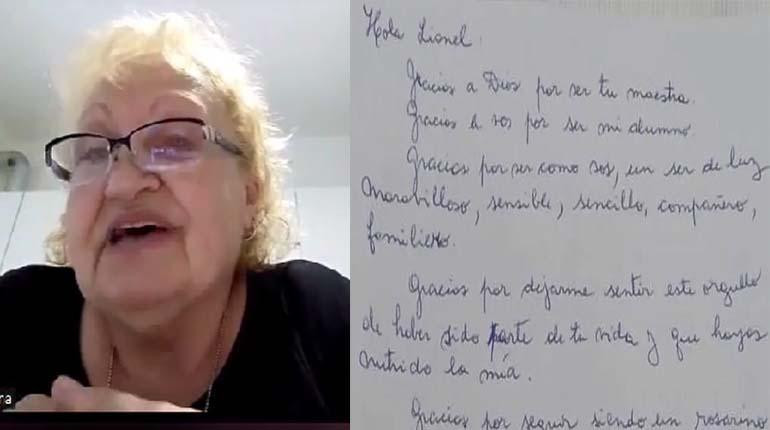 Hola Lionel.
Gracias a Dios por ser tu maestra.
Gracias a vos por ser mi alumno.
Gracias por ser como sos, un ser de luz
maravilloso, sensible, sencillo, compañero,
familiero.
Gracias por dejarme sentir este orgullo
de haber sido parte de tu vida y que hayas
nutrido la mía.
Gracias por seguir siendo un rosarino